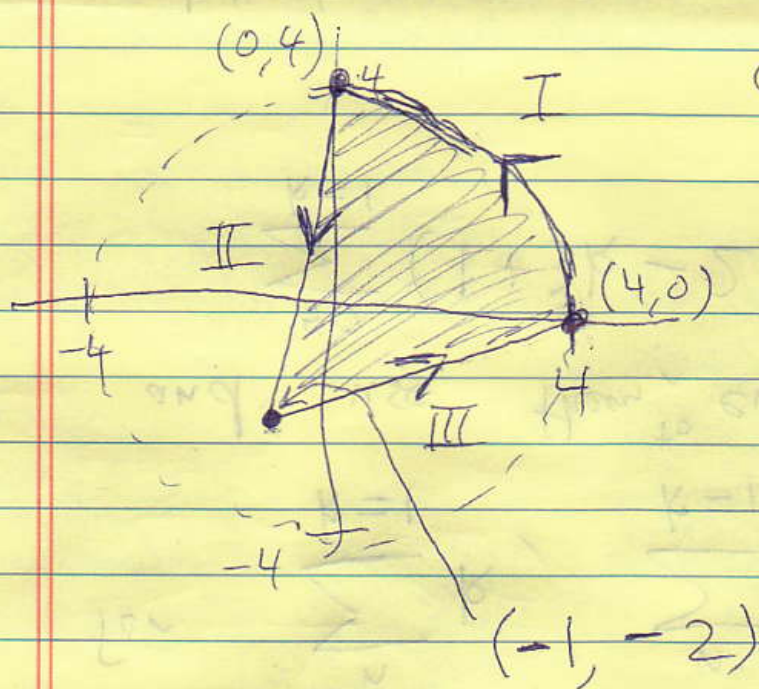 (0,4)
4
I
II
(4,0)
-4
4
III
-4
(-1, -2)